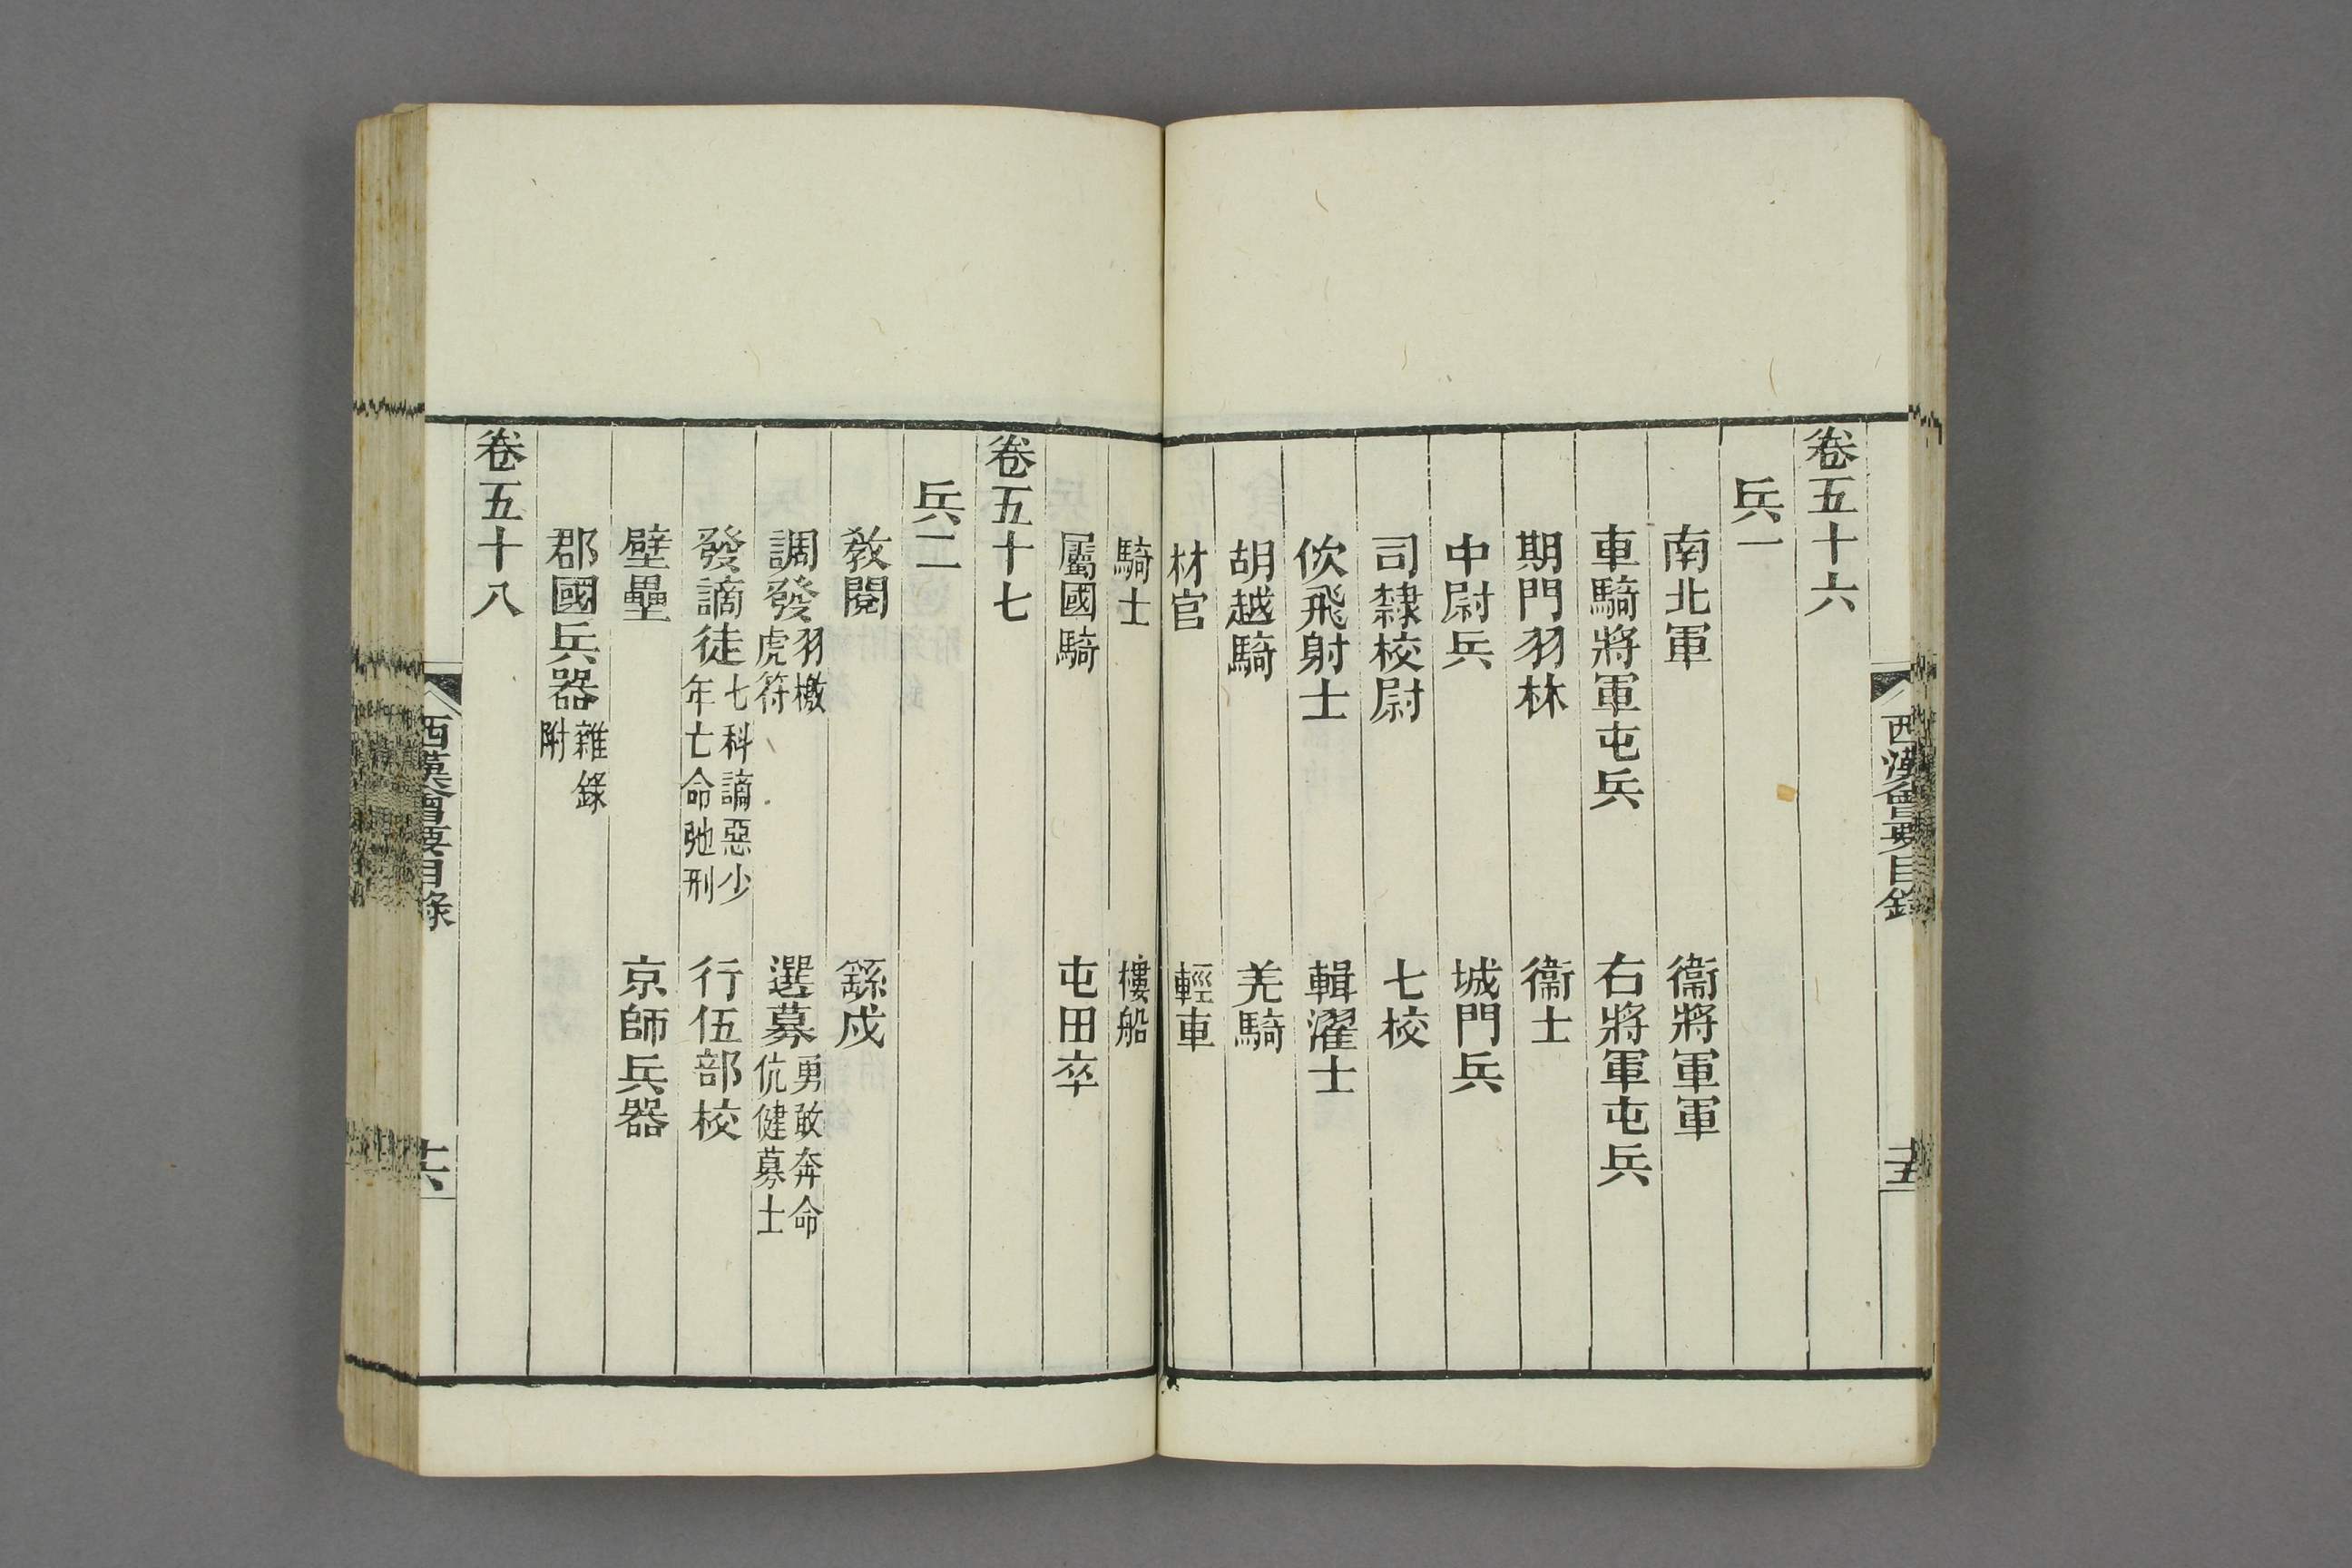 西漢會要目錄
卷五十六
兵一
南北軍 衞將軍軍
車騎將軍屯兵 右將軍屯兵
期門羽林 衞士
中尉兵 城門兵
司隸校尉 七校
佽飛射士 輯濯士
胡越騎 羌騎
材官 輕車
騎士 樓船
屬國騎 屯田卒
卷五十七
兵二
敎閱 繇戍
調發羽檄虎符 選募勇敢奔命伉健募士
發謫徒七科謫惡少年亡命弛刑 行伍部校
壁壘 京師兵器
郡國兵器雜錄附
卷五十八
西漢會要目錄